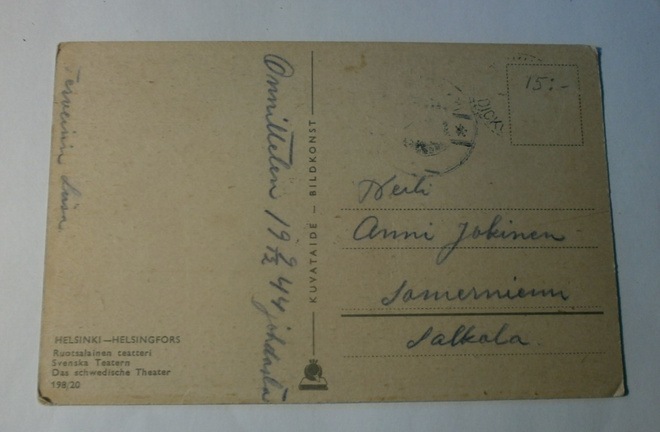 Onnittelen 19 4/2 44 johdosta
Terveisin Liisa
HELSINKI—HELSINGFORS
Ruotsalainen teatteri
Svenska Teatern
Das schwedische Theater
198/20
KUVATAIDE — BILDKONST
15:-
Neiti
Anni Jokinen
Somerniemi
Salkola.